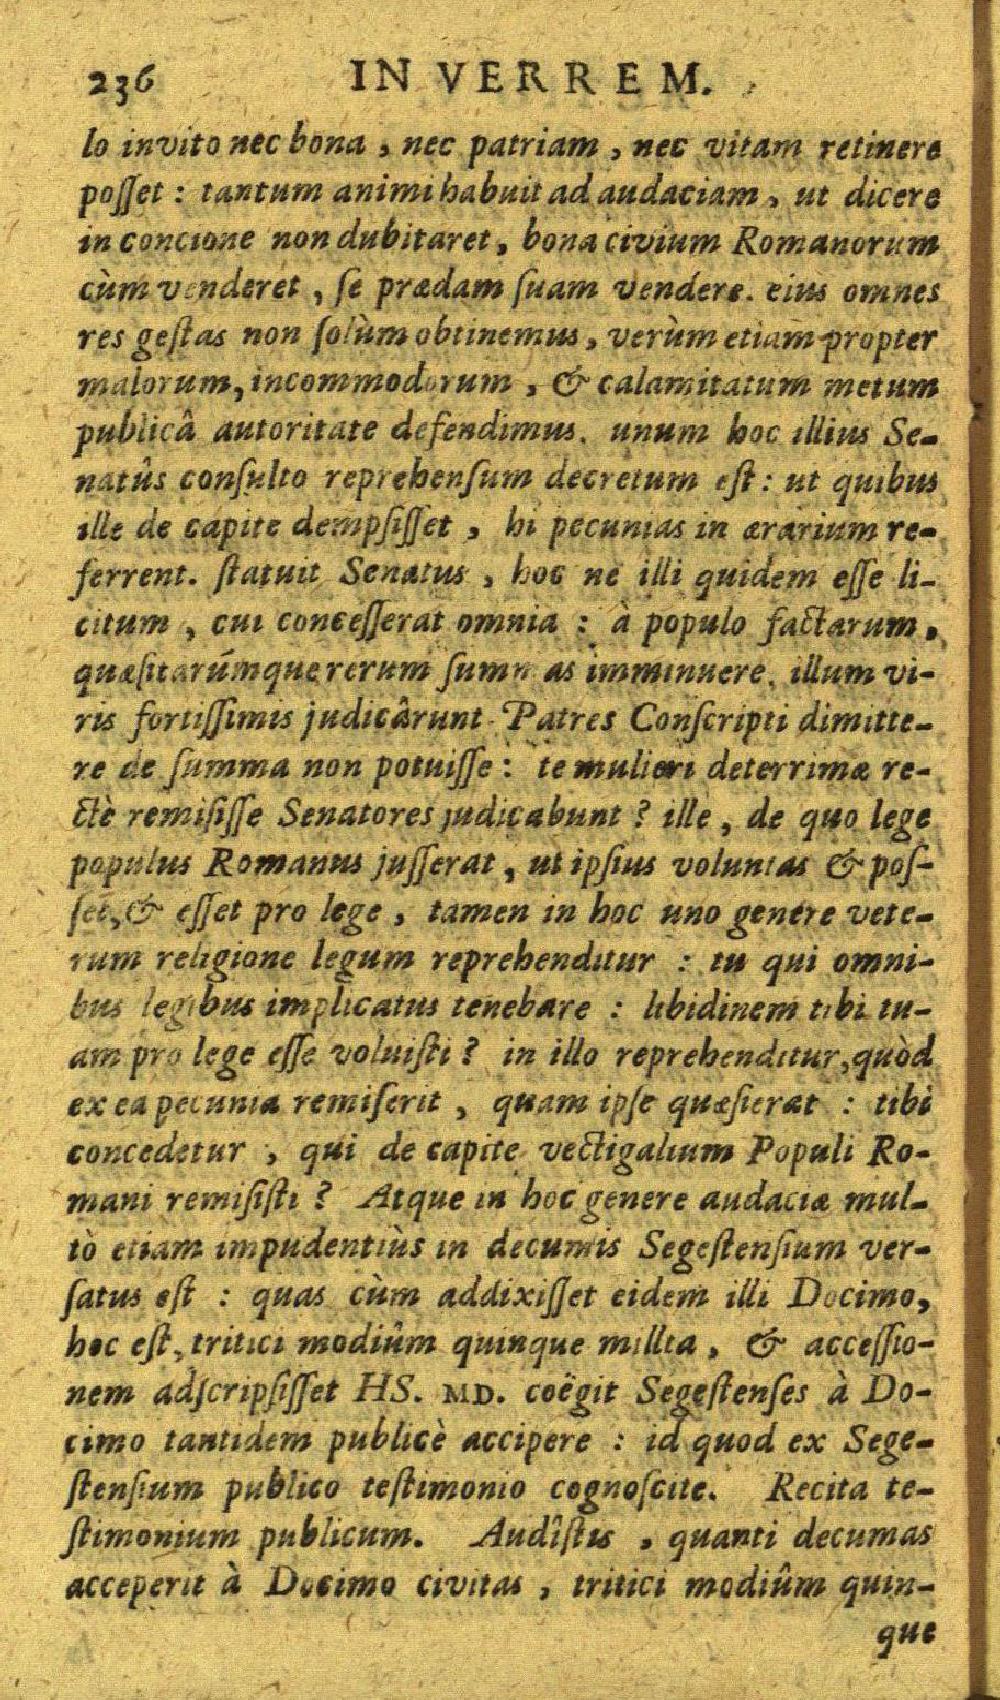 236 IN VERREM.
lo invito nec bona , nec patriam , nec vitam retinere
posſet : tantum animi habuit ad audaciam , ut dicere
in concione non dubitaret , bona civium Romanorum
cùm venderet , ſe prædam ſuam vendere. eius omnes
res geſtas non ſolùm obtinemus , verùm etiam propter
malorum, incommodorum , & calamitatum metum
publicâ autoritate defendimus. unum hoc illius Se-
natûs conſulto reprehenſum decretum eſt : ut quibus
ille de capite dempſiſſet , hi pecunias in ærarium re-
ferrent. ſtatuit Senatus , hoc ne illi quidem eſſe li-
citum , cui conceſſerat omnia : à populo factarum,
quæſitarúmque rerum summas imminuere. illum vi-
ris fortiſſimis judicârunt Patres Conſcripti dimitte-
re de ſumma non potuiſſe : te mulieri deterrimæ re-
ctè remiſiſſe Senatores judicabunt ? ille , de quo lege
populus Romanus juſſerat , ut ipſius voluntas & poſ-
ſet, & eſſet pro lege , tamen in hoc uno genere vete-
rum religione legum reprehenditur : tu qui omni-
bus legibus implicatus tenebare : libidinem tibi tu-
am pro lege eſſe voluiſti ? in illo reprehenditur, quòd
ex ea pecunia remiſerit , quam ipſe quæſierat : tibi
concedetur , qui de capite vectigalium Populi Ro-
mani remiſiſti ? Atque in hoc genere audaciæ mul-
tò etiam impudentiùs in decumis Segeſtenſium ver-
ſatus eſt : quas cùm addixiſſet eidem illi Docimo,
hoc eſt, tritici modiûm quinque millia , & acceſſio-
nem adſcripſiſſet HS. MD. coëgit Segeſtenſes à Do-
cimo tantidem publicè accipere : id quod ex Sege-
ſtenſium publico teſtimonio cognoſcite. Recita te-
ſtimonium publicum. Audîſtis , quanti decumas
acceperit à Docimo civitas , tritici modiûm quin-
que